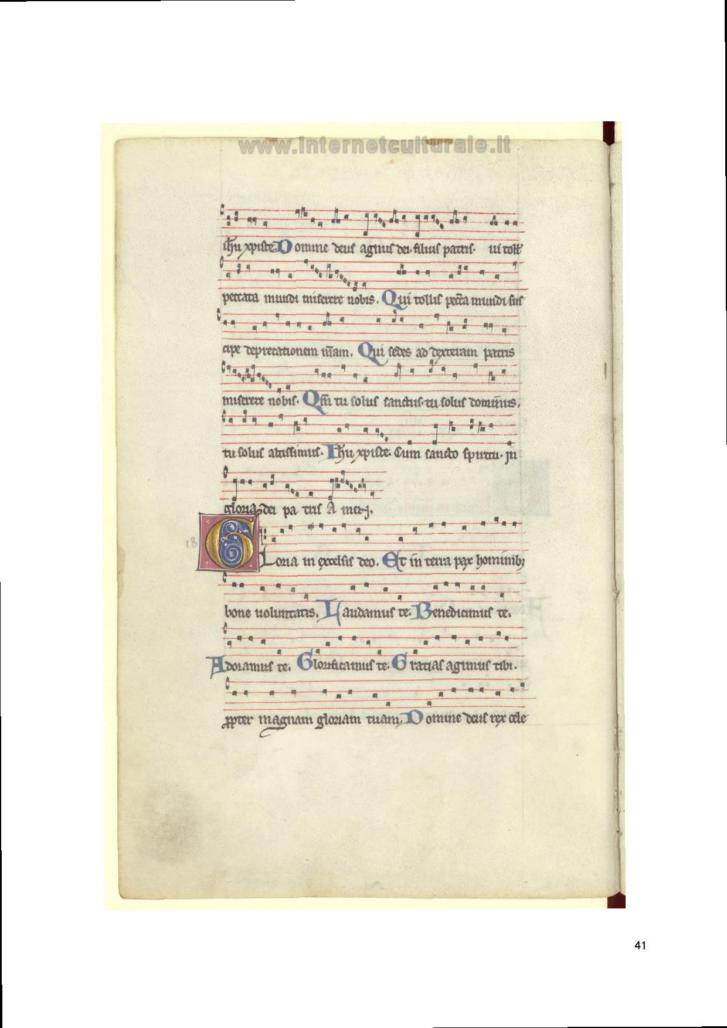 www.internetculturale.it
ihu xpiste Domine deus agnus dei filius patris. ui toll
peccata mundi miserere nobis. Qui tollis pccta mundi sus
cipe deprecationem nram. Qui sedes ad dexteram patris
miserere nobis. Qm tu solus sanctus. tu solus dominus.
tu solus altissimus. Ihu xpiste. Cum sancto spiritu. in
gloria dei pa tris A men.
18
Gloria in excelsis deo. Et in terra pax hominib;
bone uoluntatis. Laudamus te. Benedicimus te.
Adoramus te. Glorificamus te. Gratias agimus tibi.
ppter magnam gloriam tuam. Domine deus rex cele
41